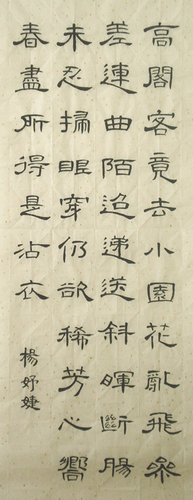 高閣客竟去小園花亂飛參
差連曲陌迢遞送斜暉斷腸
未忍掃眼穿仍欲稀芳心嚮
春盡所得是沾衣
楊妤婕